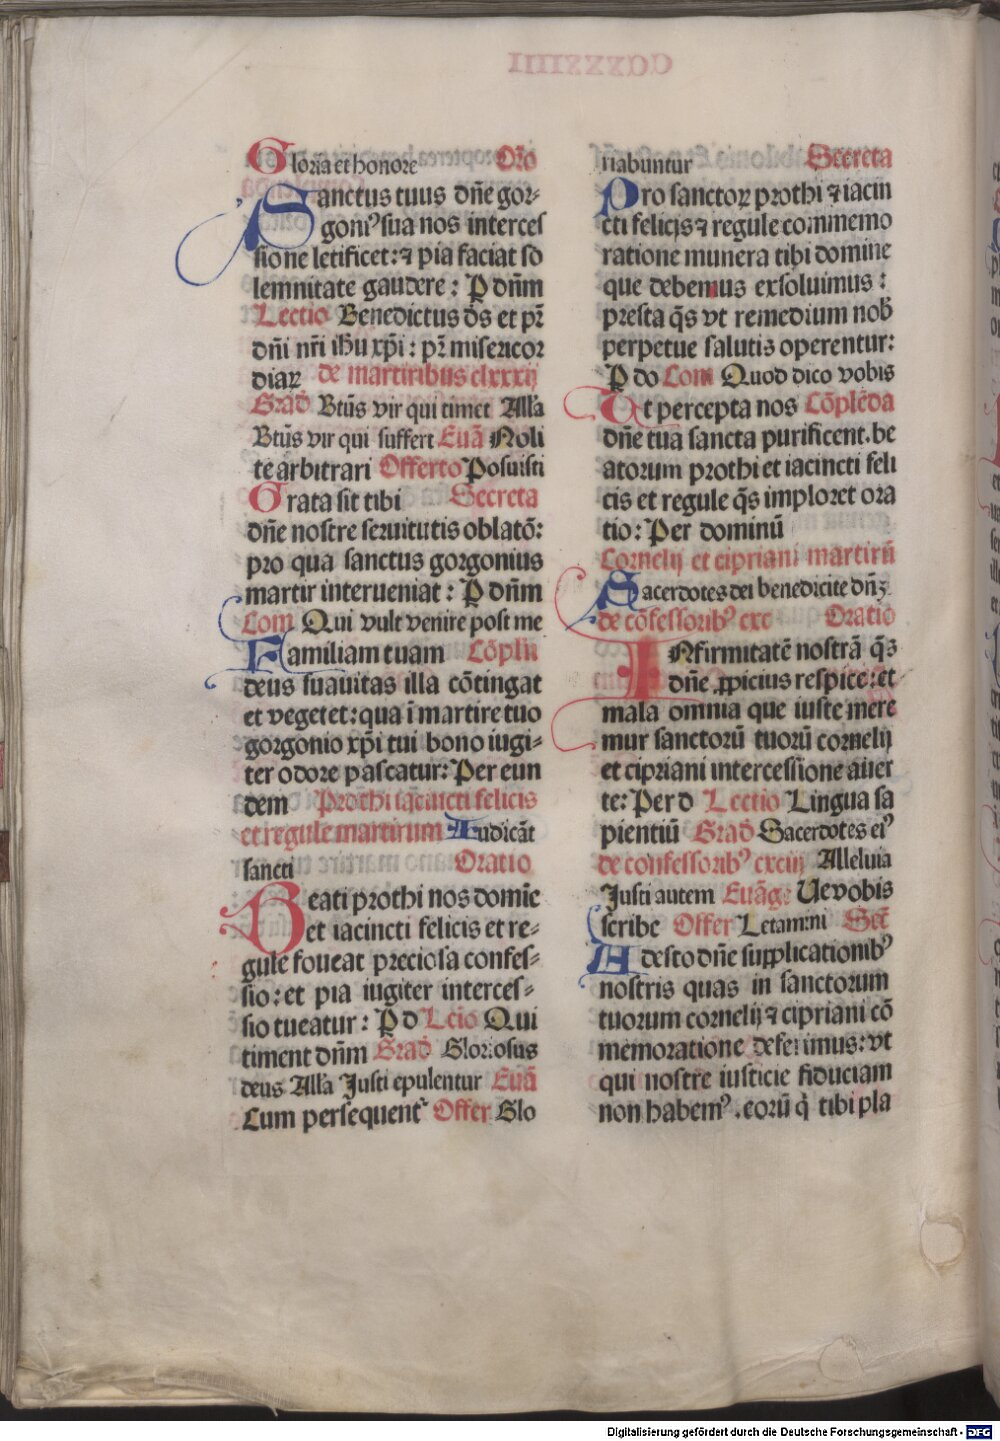 Gloria et honore Oro̅
Sanctus tuus dn̄e gor-
goniꝰ sua nos interces
sione letificet: ⁊ pia faciat so
lemnitate gaudere: P dn̄m
Lectio Benedictus ds̄ et pr̄
dn̄i nr̄i ihu xp̄i: pr̄ misericor
diaꝝ de martiribus clxxxij
Grad̄ Btūs vir qui timet All'a
Btūs vir qui suffert Euā Noli
te arbitrari Offerto Posuisti
Grata sit tibi Secreta
dn̄e nostre seruitutis oblatō:
pro qua sanctus gorgonius
martir interueniat: P dn̄m
Com Qui vult venire post me
Familiam tuam Cōpln̄
deus suauitas illa cōtingat
et vegetet: qua ī martire tuo
gorgonio xp̄i tui bono iugi-
ter odore pascatur: Per eun
dem Prothi iacincti felicis
et regule martirum Iudicāt
sancti Oratio
Beati prothi nos domīe
et iacincti felicis et re-
gule foueat preciosa confes-
sio: et pia iugiter interces-
sio tueatur: P do Lcio Qui
timent dn̄m Grad̄ Gloriosus
deus All'a Justi epulentur Euā
Cum persequent᷑ Offer Glo
riabuntur Secreta
Pro sanctoꝝ prothi ⁊ iacin
cti felicis ⁊ regule commemo
ratione munera tibi domine
que debemus exsoluimus:
presta q̄s vt remedium nob̄
perpetue salutis operentur:
P do Com Quod dico vobis
Ut percepta nos Cōplēda
dn̄e tua sancta purificent. be
atorum prothi et iacincti feli
cis et regule q̄s imploret ora
tio: Per dominū
Cornelij et cipriani martirū
Sacerdotes dei benedicite dn̄ꝫ
de cōfessoribꝰ cxc Oratio
INfirmitatē nostrā q̄s
dn̄e ꝓpicius respice: et
mala omnia que iuste mere
mur sanctorū tuorū cornelij
et cipriani intercessione auer
te: Per d Lectio Lingua sa
pientiū Grad̄ Sacerdotes eiꝰ
de confessoribꝰ cxciij Alleluia
Justi autem Euāge Ue vobis
scribe Offer Letamini Secr̄
Adesto dn̄e supplicationibꝰ
nostris quas in sanctorum
tuorum cornelij ⁊ cipriani cō
memoratione deferimus: vt
qui nostre iusticie fiduciam
non habemꝰ. eorū q̄ tibi pla
Digitalisierung gefördert durch die Deutsche Forschungsgemeinschaft - DFG